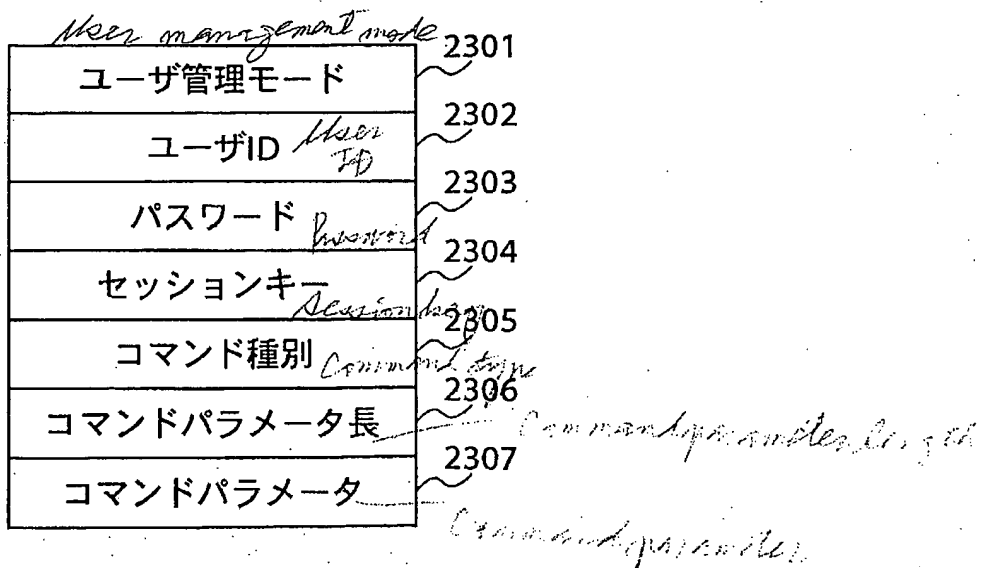 User management mode
ユーザ管理モード 2301
ユーザID User ID 2302
パスワード Password 2303
セッションキー Session key 2304
コマンド種別 Command type 2305
コマンドパラメータ長 2306
Command parameter length
コマンドパラメータ 2307
Command parameter